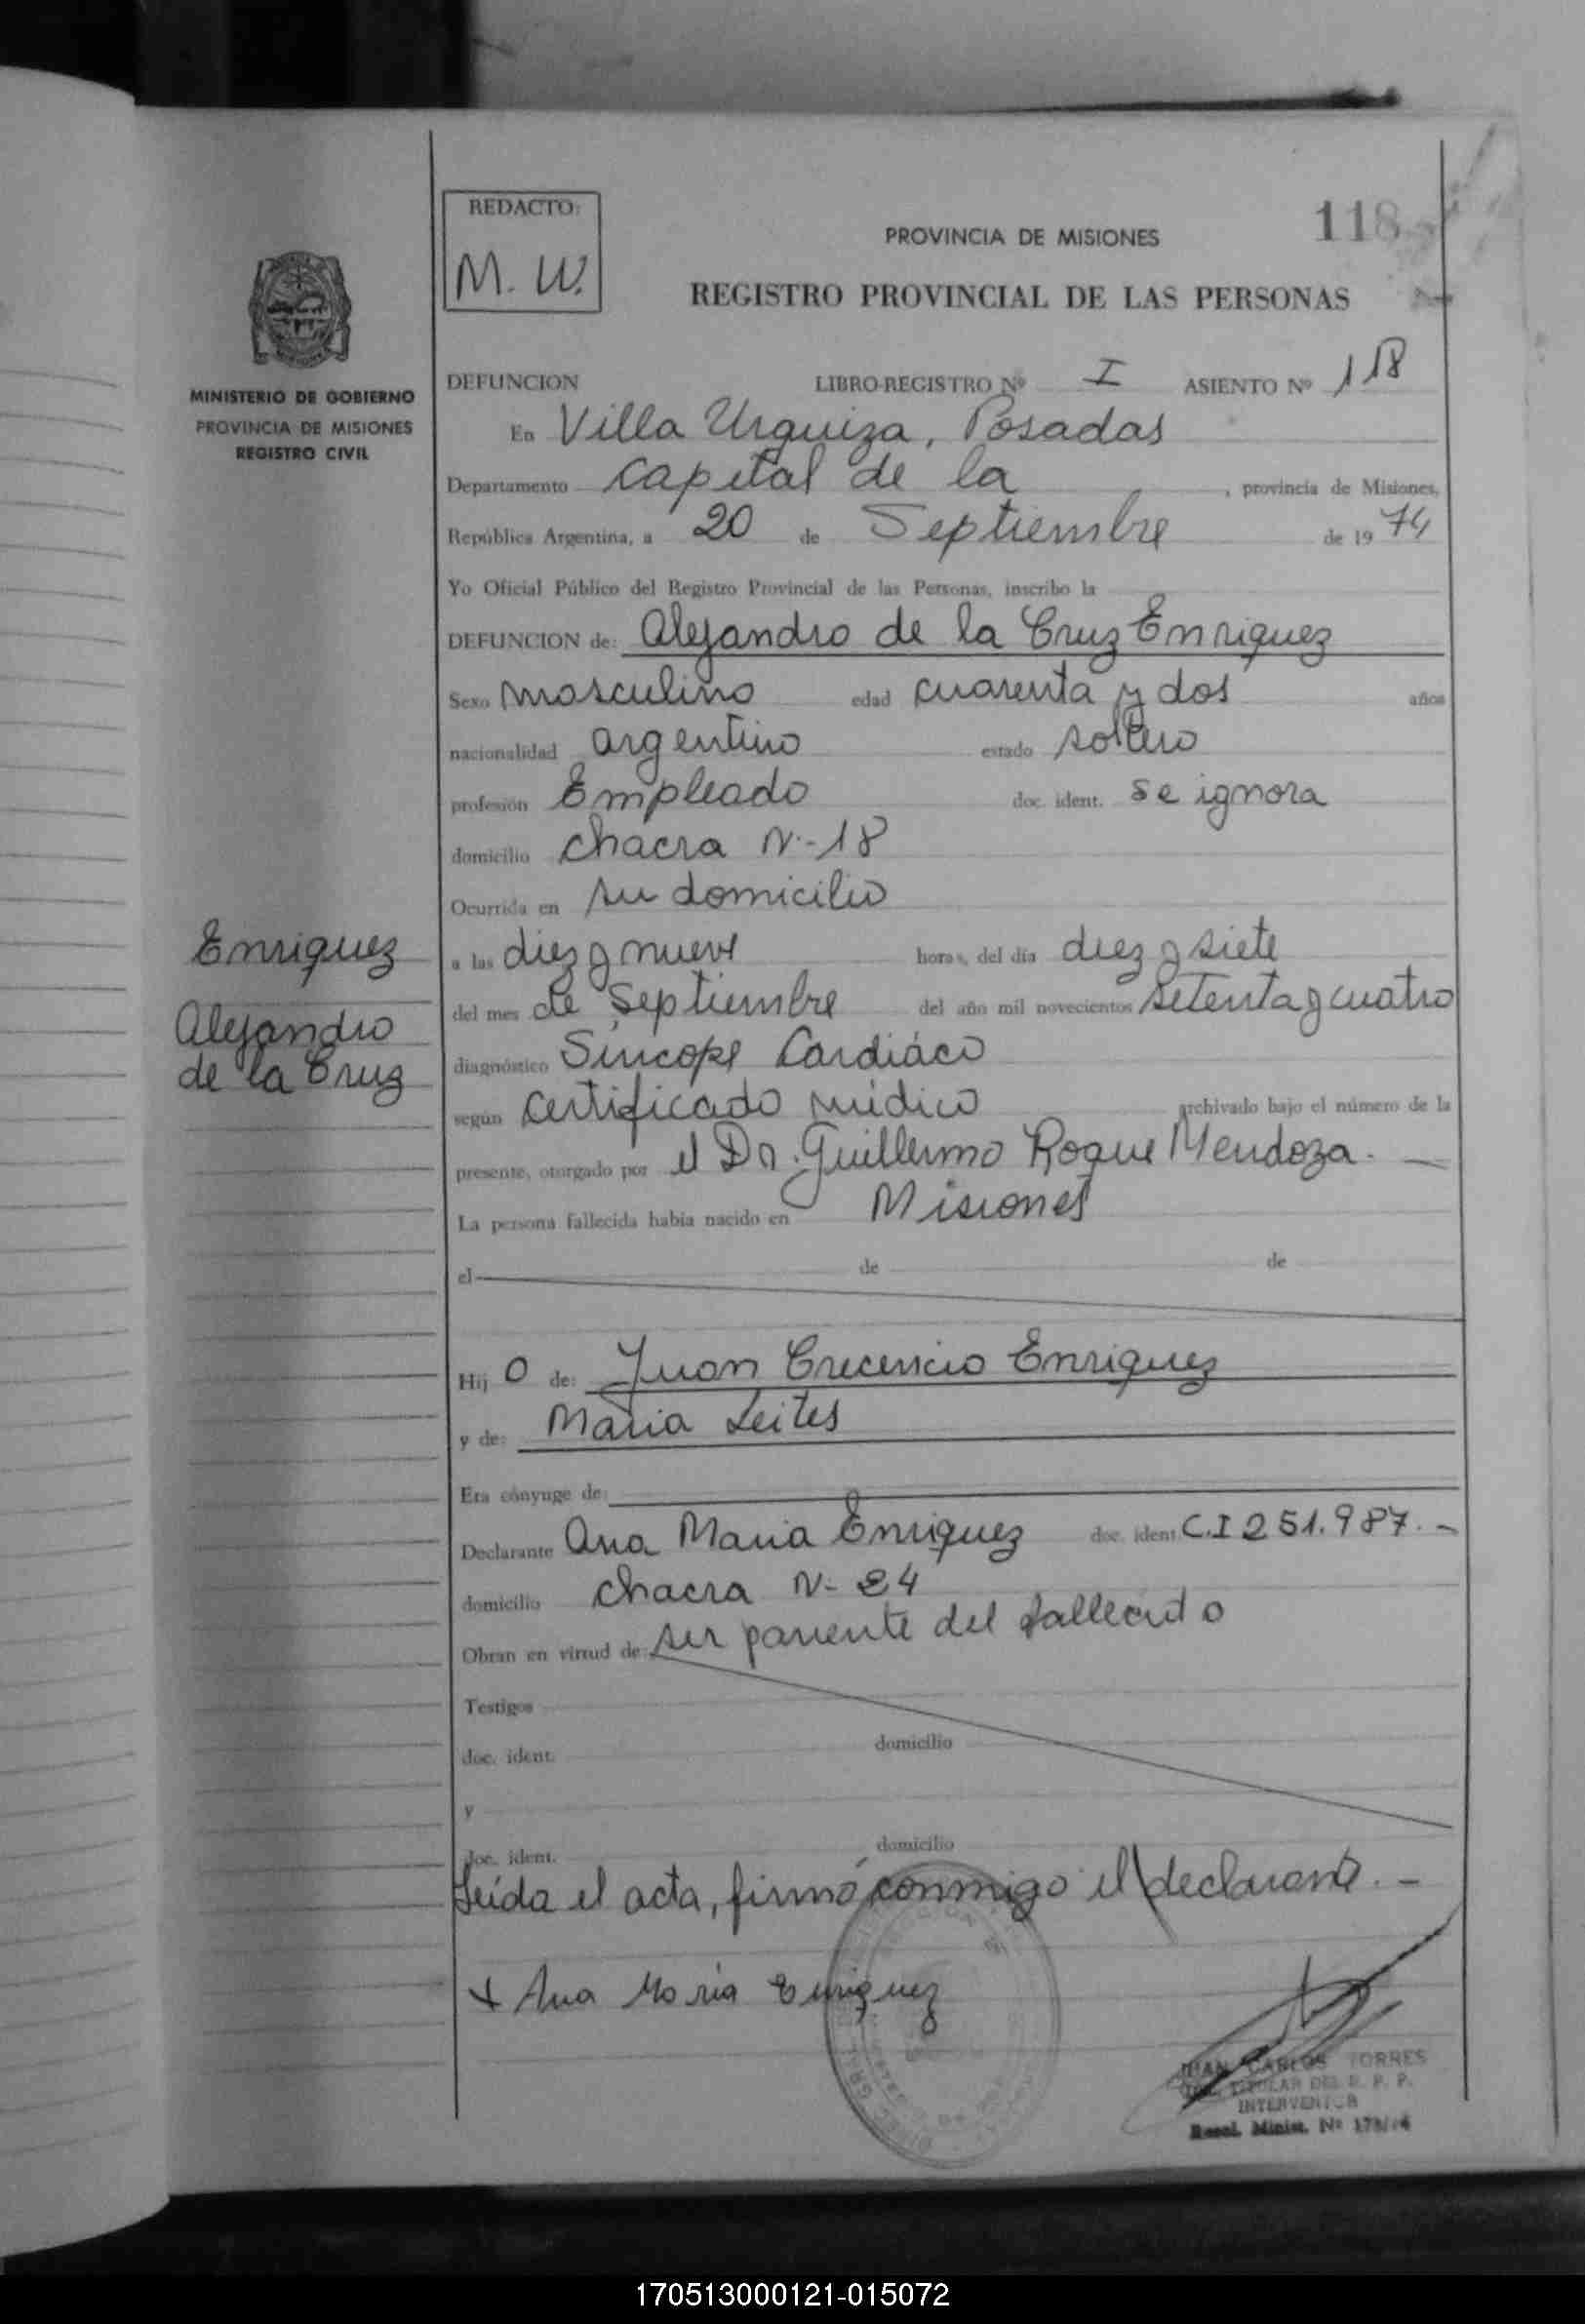 REDACTO:
M. W.
118
PROVINCIA DE MISIONES
REGISTRO PROVINCIAL DE LAS PERSONAS
MINISTERIO DE GOBIERNO
PROVINCIA DE MISIONES
REGISTRO CIVIL
DEFUNCION LIBRO-REGISTRO Nº I ASIENTO Nº 118
En Villa Urquiza, Posadas
Departamento capital de la , provincia de Misiones,
República Argentina, a 20 de Septiembre de 1974
Yo Oficial Público del Registro Provincial de las Personas, inscribo la
DEFUNCION de: Alejandro de la Cruz Enriquez
Sexo masculino edad cuarenta y dos años
nacionalidad argentino estado soltero
profesión Empleado doc. ident. se ignora
domicilio chacra N-18
Ocurrida en su domicilio
Enriquez
Alejandro
de la Cruz
a las diez y nueve horas, del día diez y siete
del mes de Septiembre del año mil novecientos setenta y cuatro
diagnóstico Sincope Cardiáco
según certificado médico archivado bajo el número de la
presente, otorgado por el Dr. Guillermo Roque Mendoza. —
La persona fallecida había nacido en Misiones
el de de
Hij o de: Juan Crecencio Enriquez
y de: Maria Leites
Era cónyuge de:
Declarante Ana Maria Enriquez doc. ident. C.I 251.987.-
domicilio chacra N- 24
Obran en virtud de: ser pariente del fallecido
Testigos
doc. ident. domicilio
y
doc. ident. domicilio
Leída el acta, firmó conmigo el declarante. -
x Ana Maria Enriquez
JUAN CARLOS TORRES
TITULAR DEL R. P. P.
INTERVENTOR
Resol. Minist. Nº
170513000121-015072